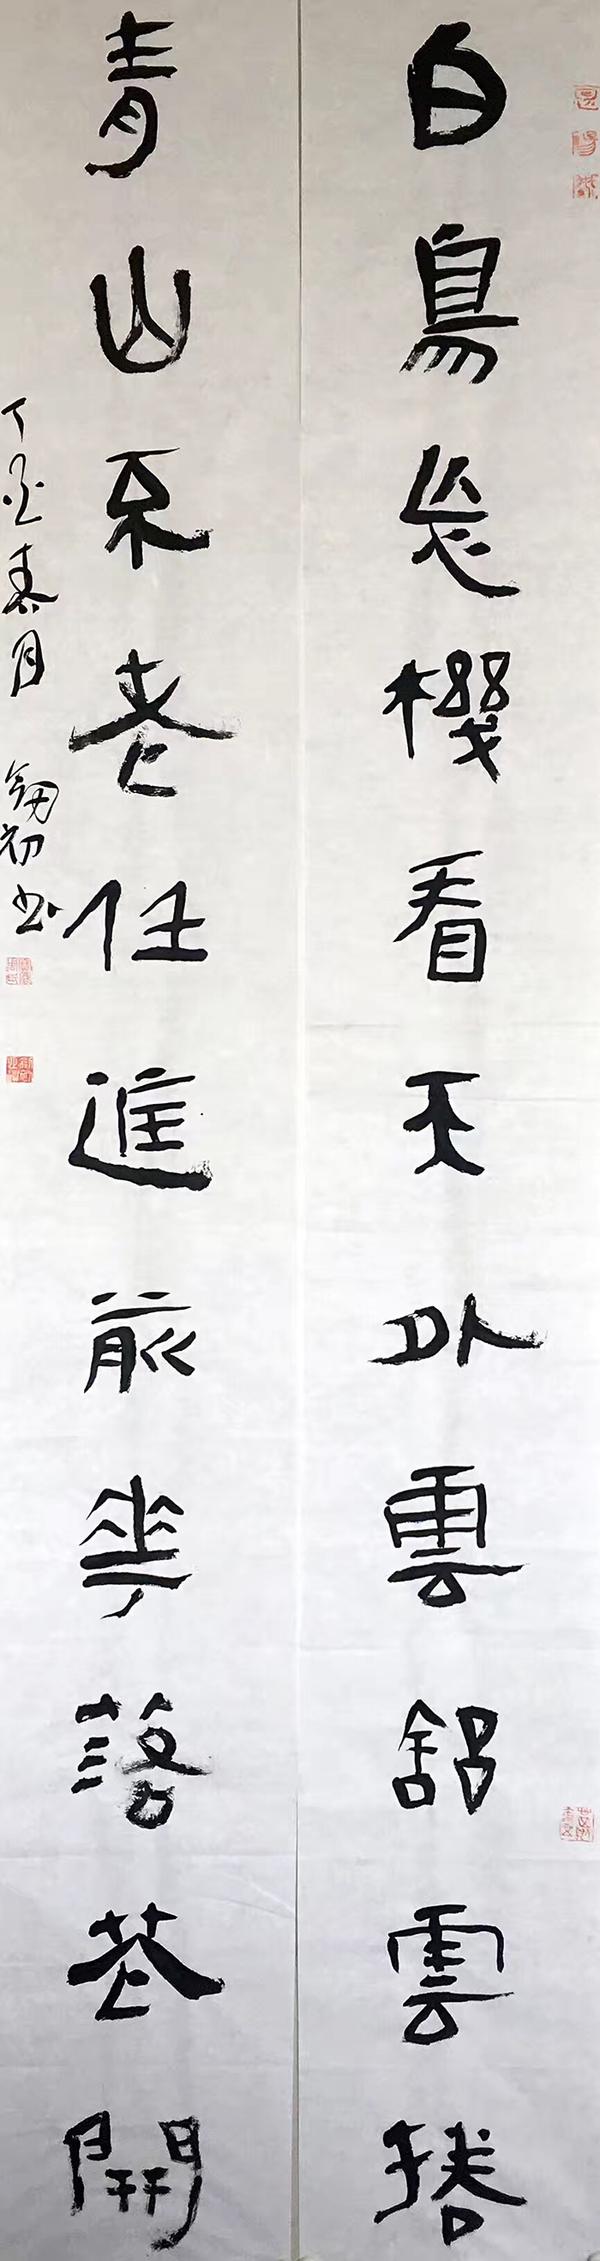 白鳥忘機看天外雲舒雲捲
青山不老任庭前華落花開
丁酉春月 初书